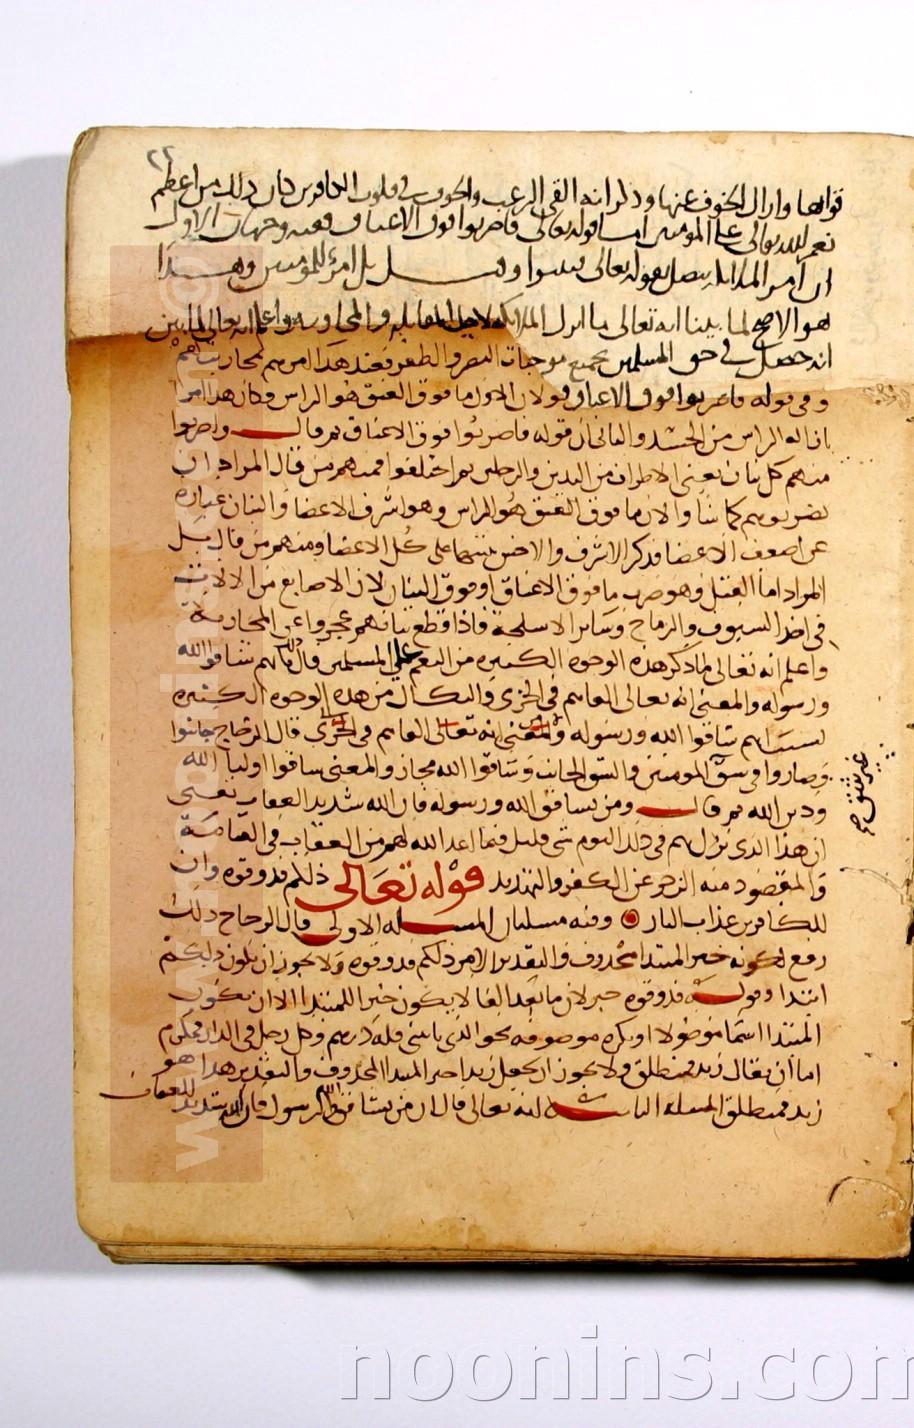 ٢٢
قواها وازال الخوف عنها وذكر انه القى الرعب والخوف في قلوب الكافرين كان ذلك من اعظم
نعم الله تعالى على المومنين اما قوله تعالى فاضربوا فوق الاعناق ففيه وجهان الاول
ان امر الملائكه متصل بقوله تعالى فثبتوا وقيل بل امر للمومنين وهذا
هو الاصح لما بينا انه تعالى ما انزل الملائكة لاجل المقابله والمحاربه واعلم انه تعالى لما بين
انه حصل في حق المسلمين جميع موجبات النصر والظفر فعند هذا امرهم بمحاربتهم
وفي قوله فاضربوا فوق الاعناق قولان الاول ما فوق العنق هو الراس فكان هذا امرا
بازاله الراس من الجسد والثاني ان قوله فاضربوا فوق الاعناق ثم قال واضربوا
منهم كل بنان يعني الاطراف من اليدين والرجلين ثم اختلفوا فمنهم من قال المراد ان
يضربوهم كما شاوا لان ما فوق العنق هو الراس وهو اشرف الاعضا والبنان عباره
عن اضعف الاعضا فذكر الاشرف والاخس تنبيها على كل الاعضا ومنهم من قال بل
المراد اما القتل وهو ضرب ما فوق الاعناق او فوق البنان لان الاصابع من الالات
في اخذ السيوف والرماح وسائر الاسلحة فاذا قطع بنانهم عجزوا عن المحاربة
واعلم انه تعالى لما ذكر هذه الوجوه الكثيره من النعم على المسلمين قال ذلك بانهم شاقوا الله
ورسوله والمعنى انه تعالى القاهم في الخزي والنكال من هذه الوجوه الكثيره
بسبب انهم شاقوا الله ورسوله والمعنى انه تعالى القاهم في الخزي قال الزجاج جانبوا
وصاروا في شق المومنين والشق الجانب وشاقوا الله مجاز والمعنى شاقوا اوليا الله
ودين الله ثم قال ومن يشاقق الله ورسوله فان الله شديد العقاب يعني
ان هذا الذي نزل بهم في ذلك اليوم شي قليل فيما اعد الله لهم من العقاب في القيامة
والمقصود منه الزجر عن الكفر والتهديد قوله تعالى ذلكم فذوقوه وان
للكافرين عذاب النار وفيه مسئلتان المسئله الاولى قال الزجاج ذلك
رفع لكونه خبر المبتدا محذوف والتقدير الامر ذلكم فذوقوه ولا يجوز ان يكون ذلكم
ابتدا وقوله فذوقوه خبر لان ما بعد الفا لا يكون خبرا للمبتدا الا ان يكون
المبتدا اسما موصولا او نكره موصوفه نحو الذي ياتيني فله درهم وكل رجل في الدار فمكرم
اما ان يقال زيد فمنطلق ولا يجوز ان يجعل زيد اخبر المبتدا المحذوف والتقدير هذا هو
زيد فمنطلق المسله الثانيه انه تعالى قال ان من يشاقق الله والرسول فان الله شديد العقاب
غير شق صح
noonins.com